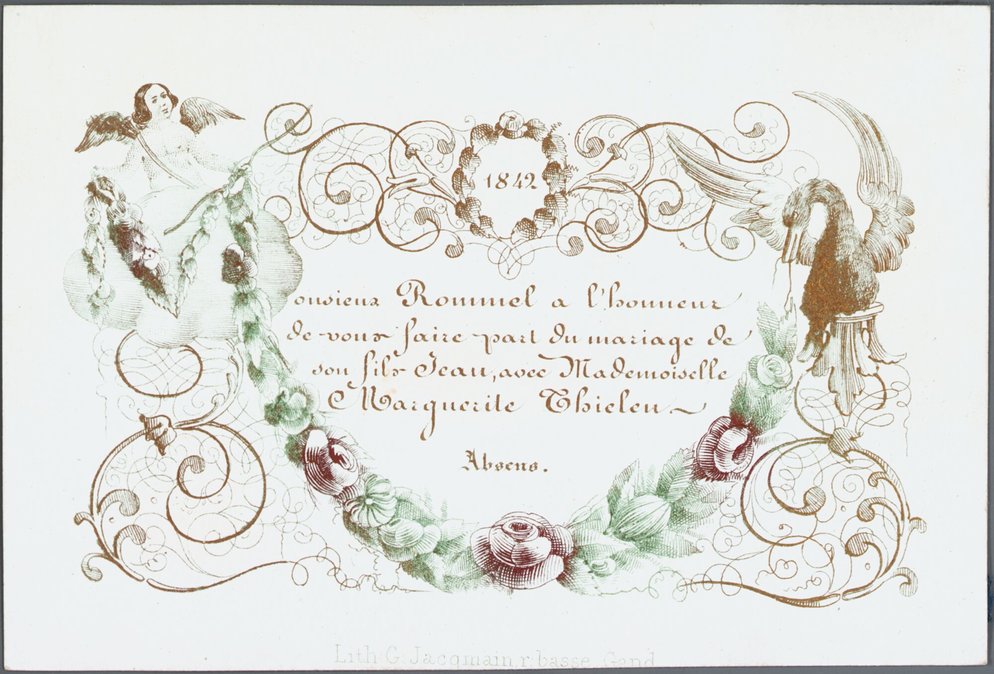 1842
onsieur Rommel a l'honneur
de vous faire part du mariage de
son fils Jean, avec Mademoiselle
Marguerite Thielen
Absens.
Lith. G. Jacqmain r. basse Gand